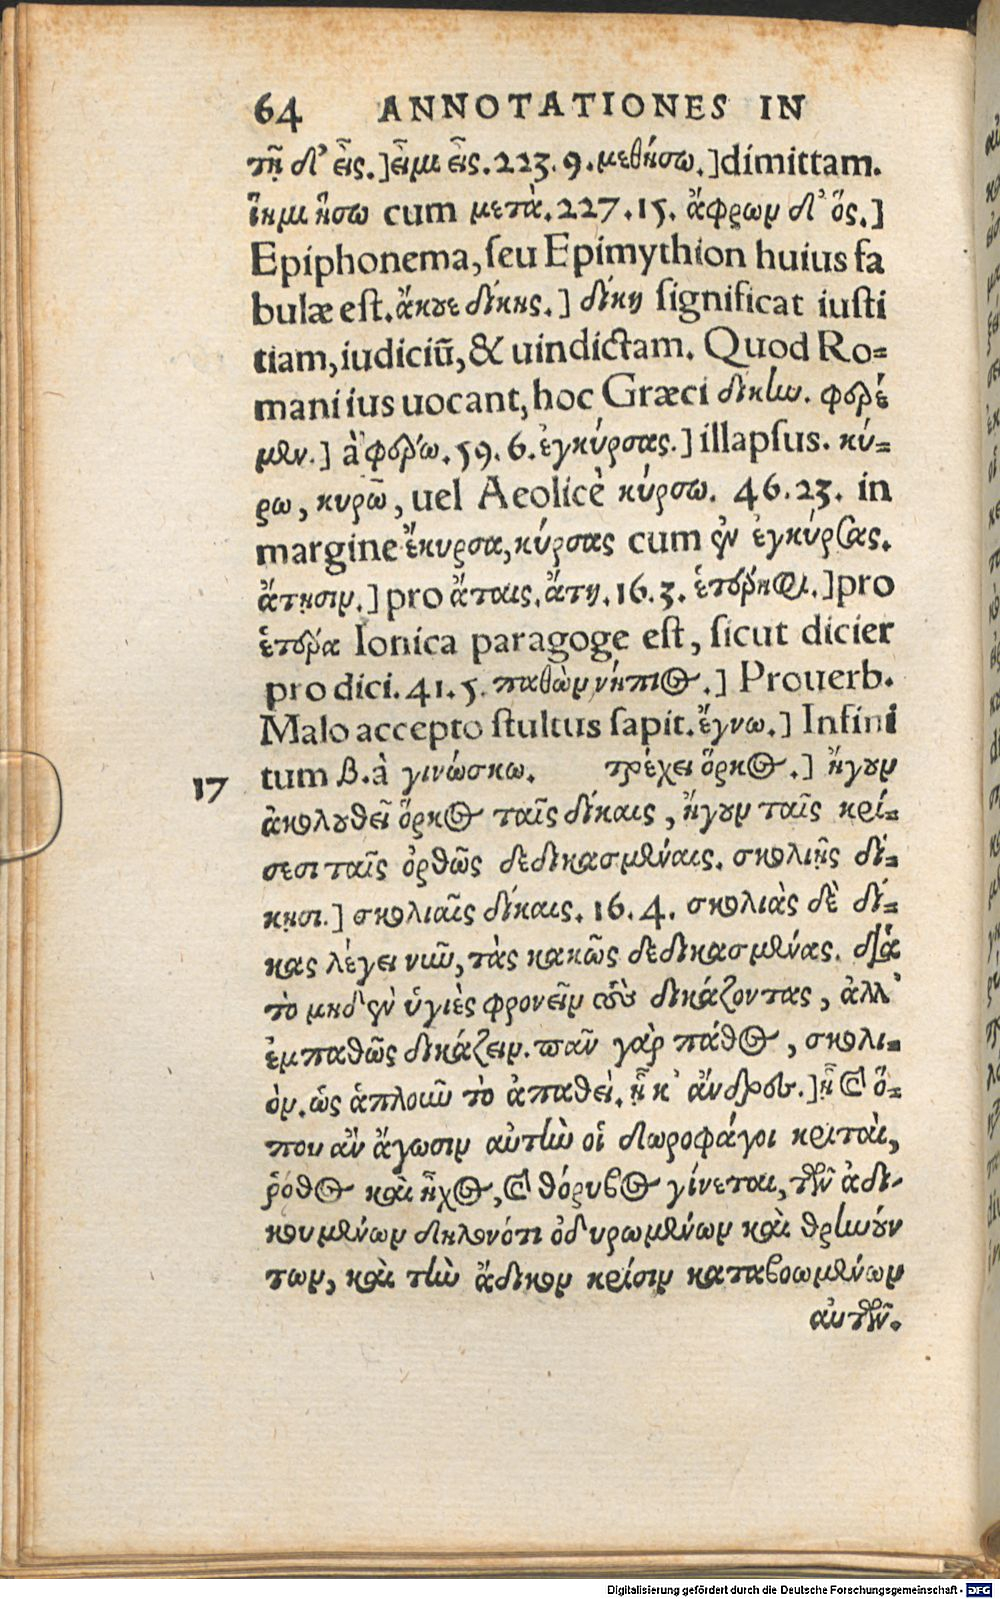 64 ANNOTATIONES IN
τῇ δ' εἶς.]εἶμι εἶς.223.9.μεθήσω.]dimittam.
ἵημι ἥσω cum μετὰ.227.15. ἄφρων δ' ὅς.]
Epiphonema, ſeu Epimythion huius fa
bulæ eſt.ἄκουε δίκης.] δίκη significat iuſti
tiam, iudiciũ, & uindictam. Quod Ro=
mani ius uocant, hoc Græci δίκην. φορέ
μεν.] à φορέω.59.6.ἐγκύρσας.] illapſus. κύ=
ρω, κυρῶ, uel Aeolicè κύρσω. 46.23. in
margine ἔκυρσα, κύρσας cum ἐν ἐγκύρσας.
ἄτησιν.] pro ἄταις.ἄτη.16.3. ἑτέρηφι.]pro
ἑτέρα Ionica paragoge eſt, ſicut dicier
pro dici.41.5. παθὼν νήπιος.] Prouerb.
Malo accepto ſtultus ſapit.ἔγνω.] Infini
tum β.à γινώσκω. τρέχει ὅρκος.] ἤγουν
17
ἀκολουθεῖ ὅρκος ταῖς δίκαις, ἤγουν ταῖς κρί=
σεσι ταῖς ὀρθῶς δεδικασμέναις. σκολιῇς δί=
κησι.] σκολιαῖς δίκαις. 16.4. σκολιὰς δὲ δί=
κας λέγει νῦν, τὰς κακῶς δεδικασμένας. διὰ
τὸ μηδὲν ὑγιὲς φρονεῖν τοὺς δικάζοντας, ἀλλ'
ἐμπαθῶς δικάζειν.πᾶν γὰρ πάθος, σκολι=
όν.ὡς ἁπλοῦν τὸ ἀπαθές.ᾗ κ' ἄνδρες.]ᾗ καὶ ὅ=
που ἂν ἄγωσιν αὐτὴν οἱ δωροφάγοι κριταὶ,
ῥόθος καὶ ἦχος, καὶ θόρυβος γίνεται, τῶν ἀδι=
κουμένων δηλονότι ὀδυρωμένων καὶ θρηνούν
των, καὶ τὴν ἄδικον κρίσιν καταβοωμένων
αὐτῶν.
Digitalisierung gefördert durch die Deutsche Forschungsgemeinschaft - DFG